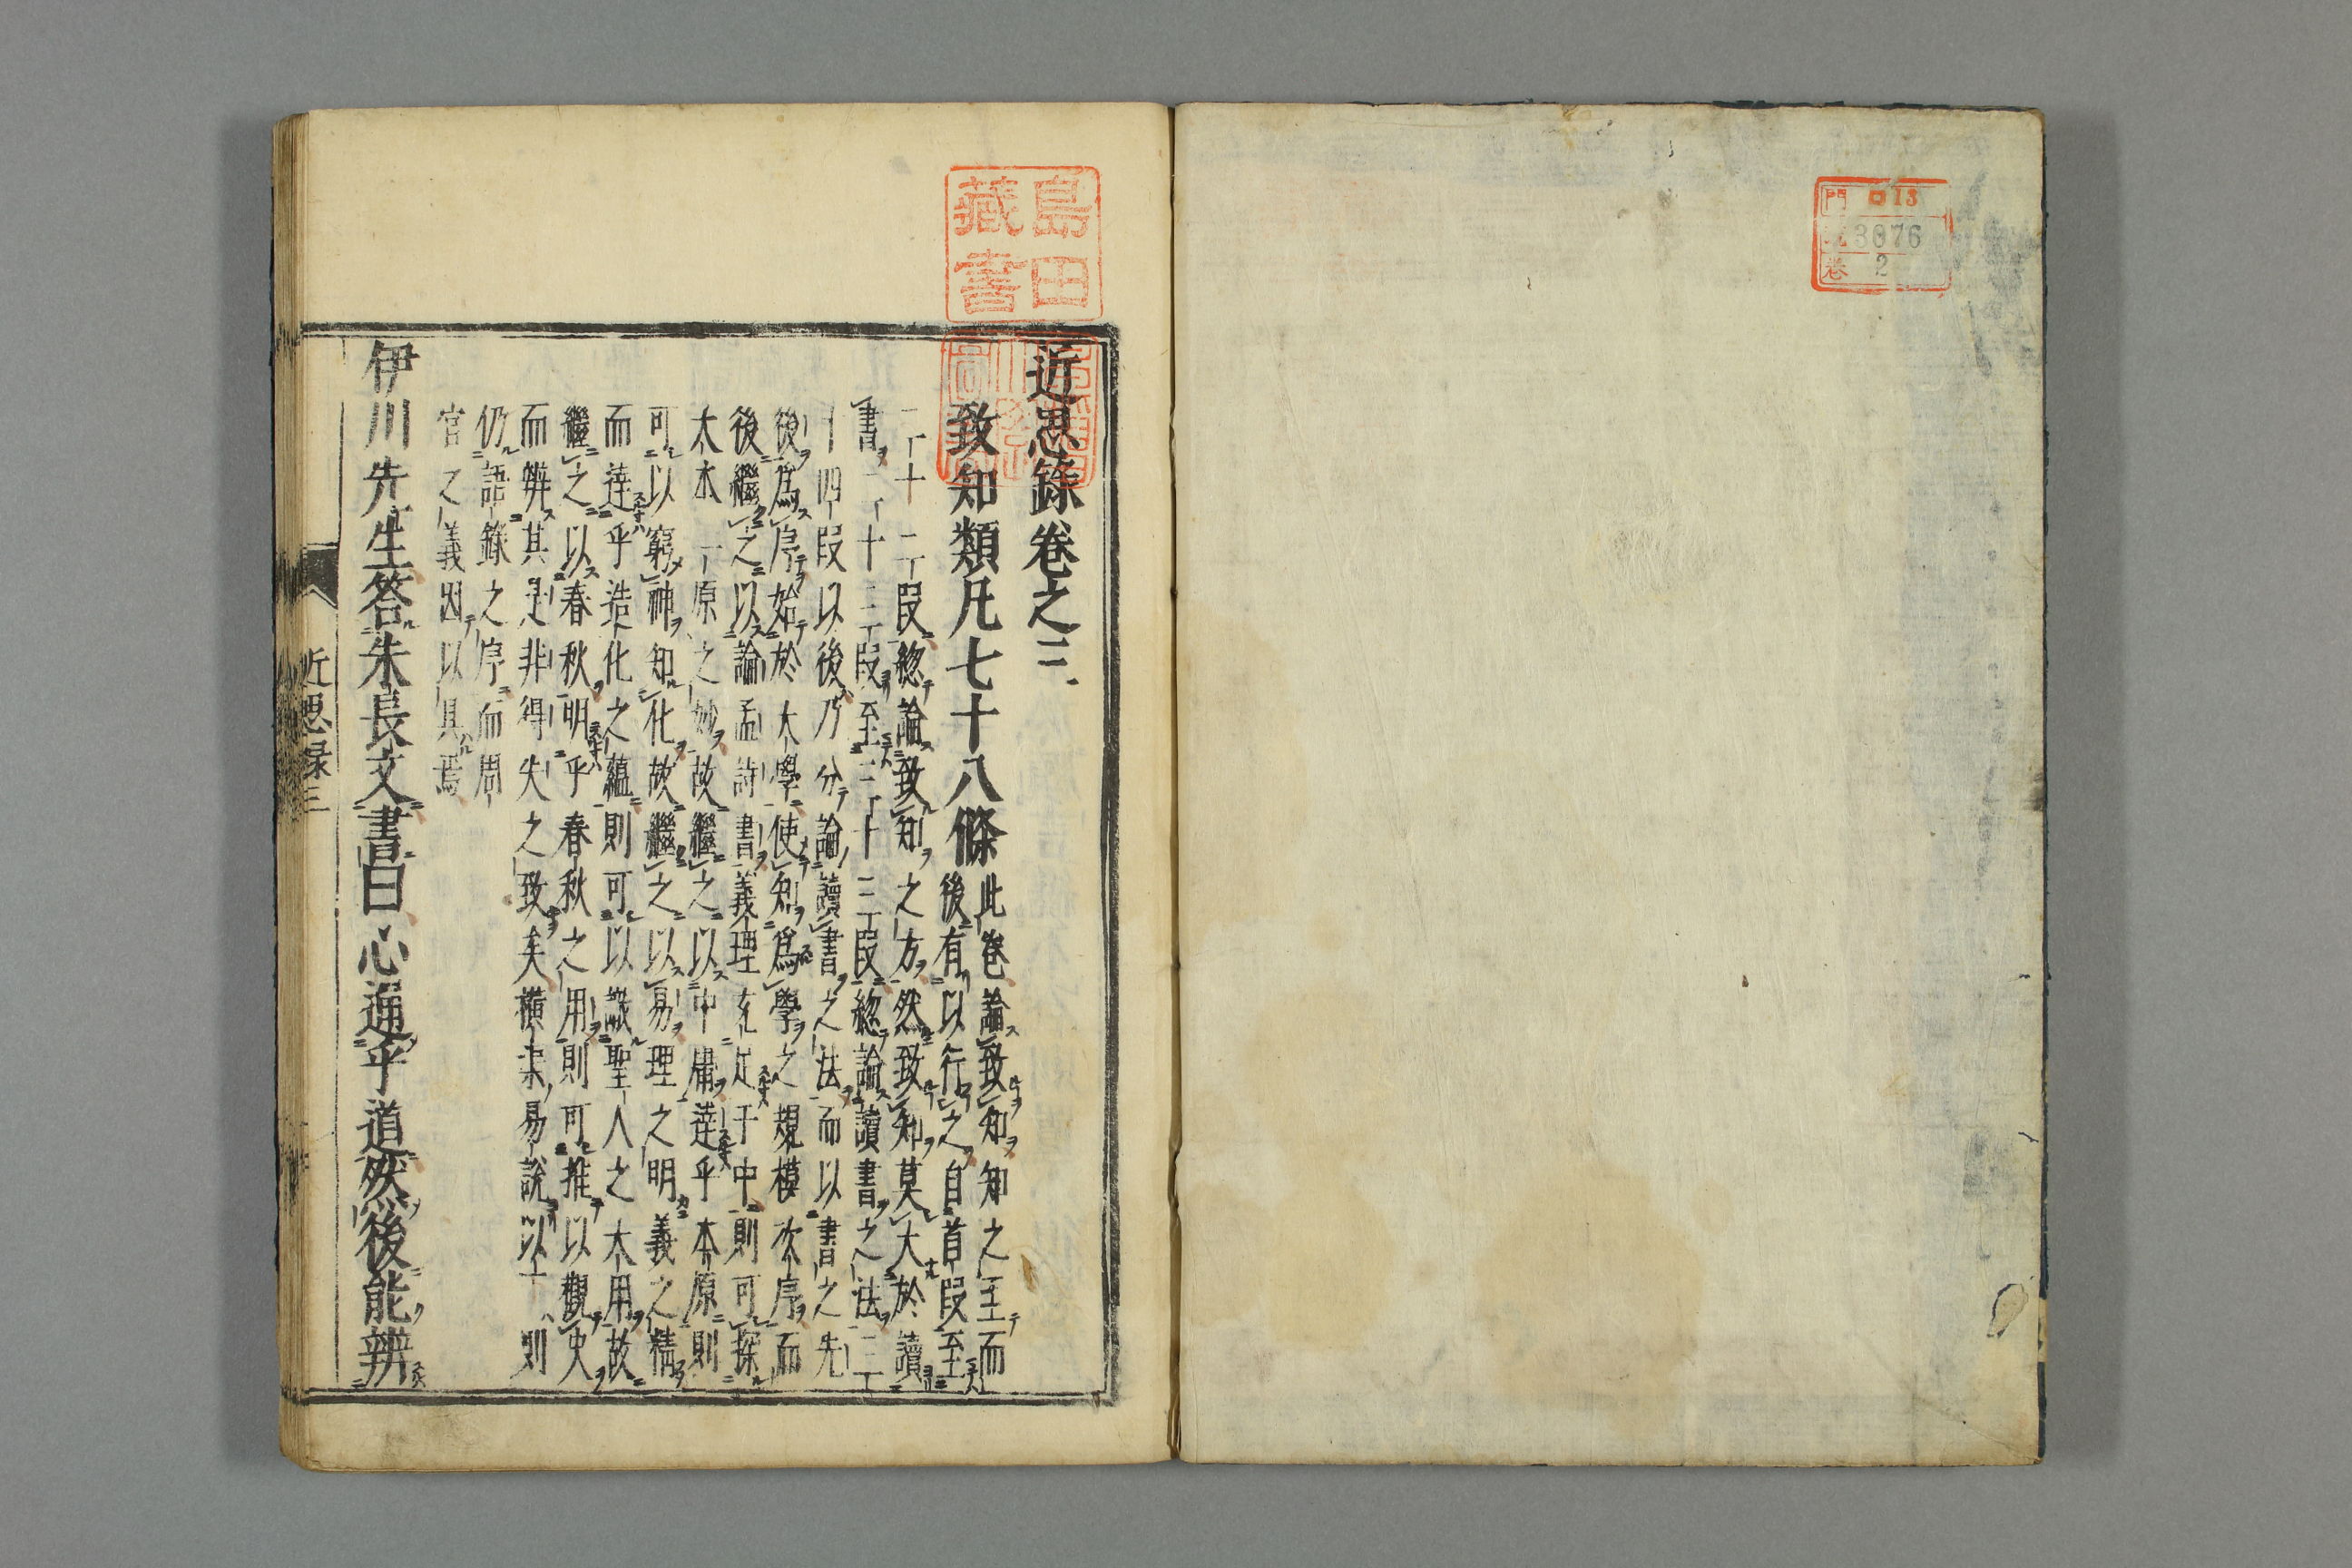 門 ロ13
3076
卷 2
島田
藏書
近思錄卷之三
致知類凡七十八條
此卷論致知知之至而
後有以行之自首段至
二十二段總論致知之方然致知莫大於讀
書二十三段至三十三段總論讀書之法三
十四段以後乃分論讀書之法而以書之先
後爲序始於大學使知爲學之規模次序而
後繼之以論孟詩書義理充足于中則可探
大本一原之妙故繼之以中庸達乎本原則
可以窮神知化故繼之以易理之明義之精
而達乎造化之蘊則可以識聖人之大用故
繼之以春秋明乎春秋之用則可推以觀史
而辨其是非得失之致矣橫渠易說以下則
仍語錄之序而周
官之義因以具焉
伊川先生答朱長文書曰心通乎道然後能辨
近思録三